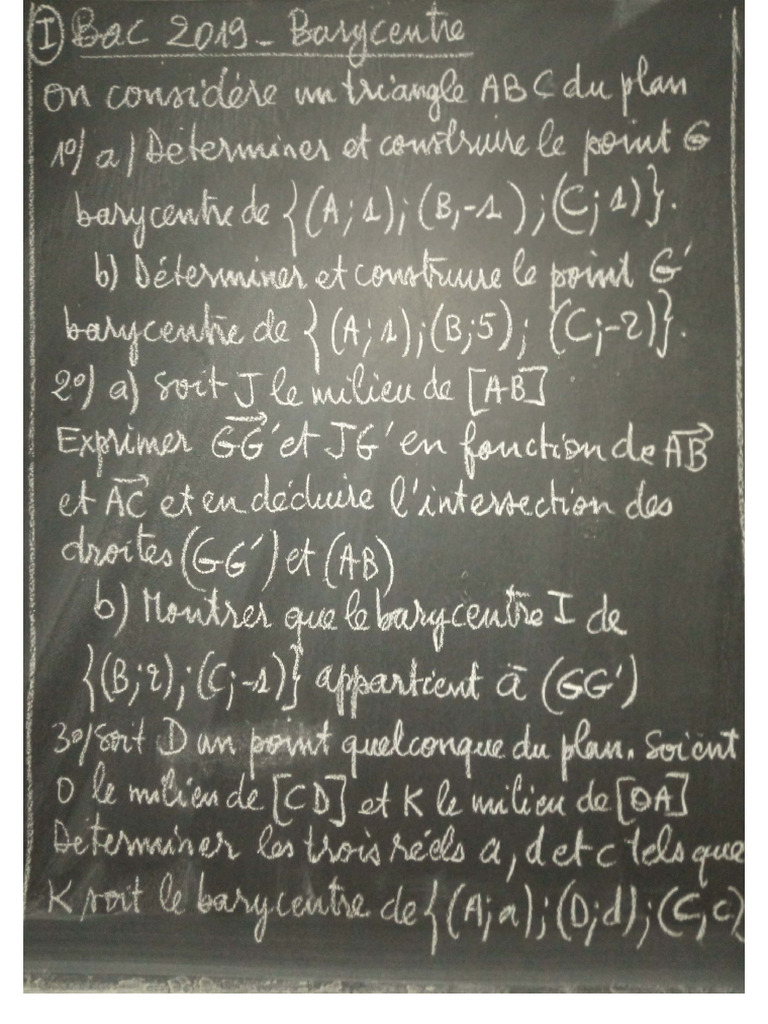 I Bac 2019 - Barycentre
on considére un triangle ABC du plan
1º/ a) Déterminer et construire le point G
barycentre de {(A; 1); (B, -1); (C; 1)}.
b) Déterminer et construire le point G'
barycentre de {(A; 1); (B; 5); (C; -2)}.
2º/ a) Soit J le milieu de [AB]
Exprimer GG' et JG' en fonction de AB
et AC et en déduire l'intersection des
droites (GG') et (AB)
b) Montrer que le barycentre I de
{(B; 2); (C; -1)} appartient à (GG')
3º/ Soit D un point quelconque du plan. Soient
O le milieu de [CD] et K le milieu de [OA]
Déterminer les trois réels a, d et c tels que
K soit le barycentre de {(A; a); (D; d); (C, c)